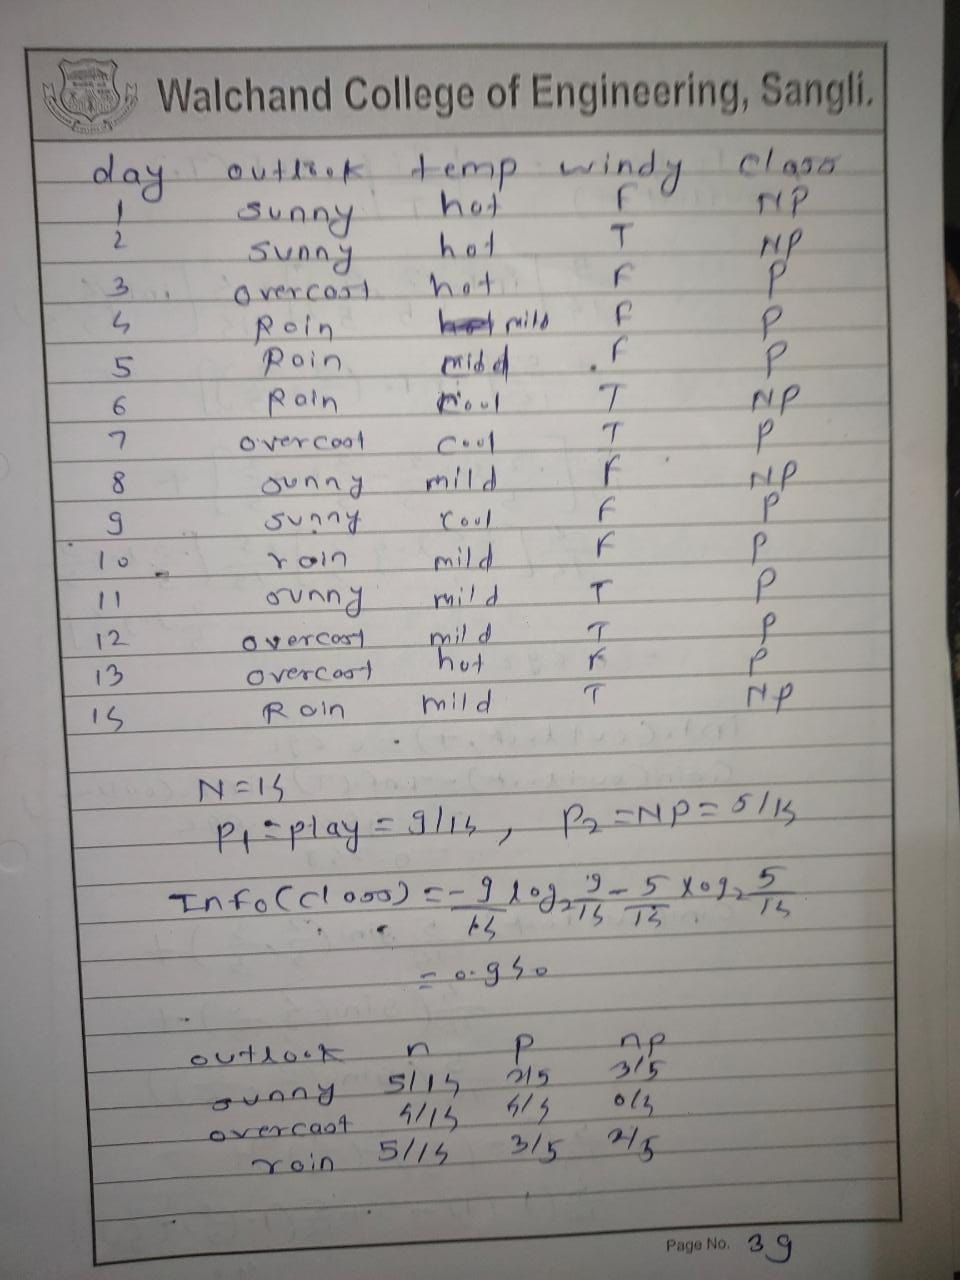 Walchand College of Engineering, Sangli.
day outlook temp windy class
1 sunny hot F NP
2 sunny hot T NP
3 overcast hot F P
4 Rain mild F P
5 Rain F P
6 Rain cool T NP
7 overcast cool T P
8 sunny mild F NP
9 sunny cool F P
10 rain mild F P
11 sunny mild T P
12 overcast mild T P
13 overcast hot F P
14 Rain mild T NP
N=14
P1 = play = 9/14, P2 = NP = 5/14
Info(class) = -9/14 log2 9/14 - 5/14 log2 5/14
= 0.940
outlook n p np
sunny 5/14 2/5 3/5
overcast 4/14 4/4 0/4
rain 5/14 3/5 2/5
Page No. 39